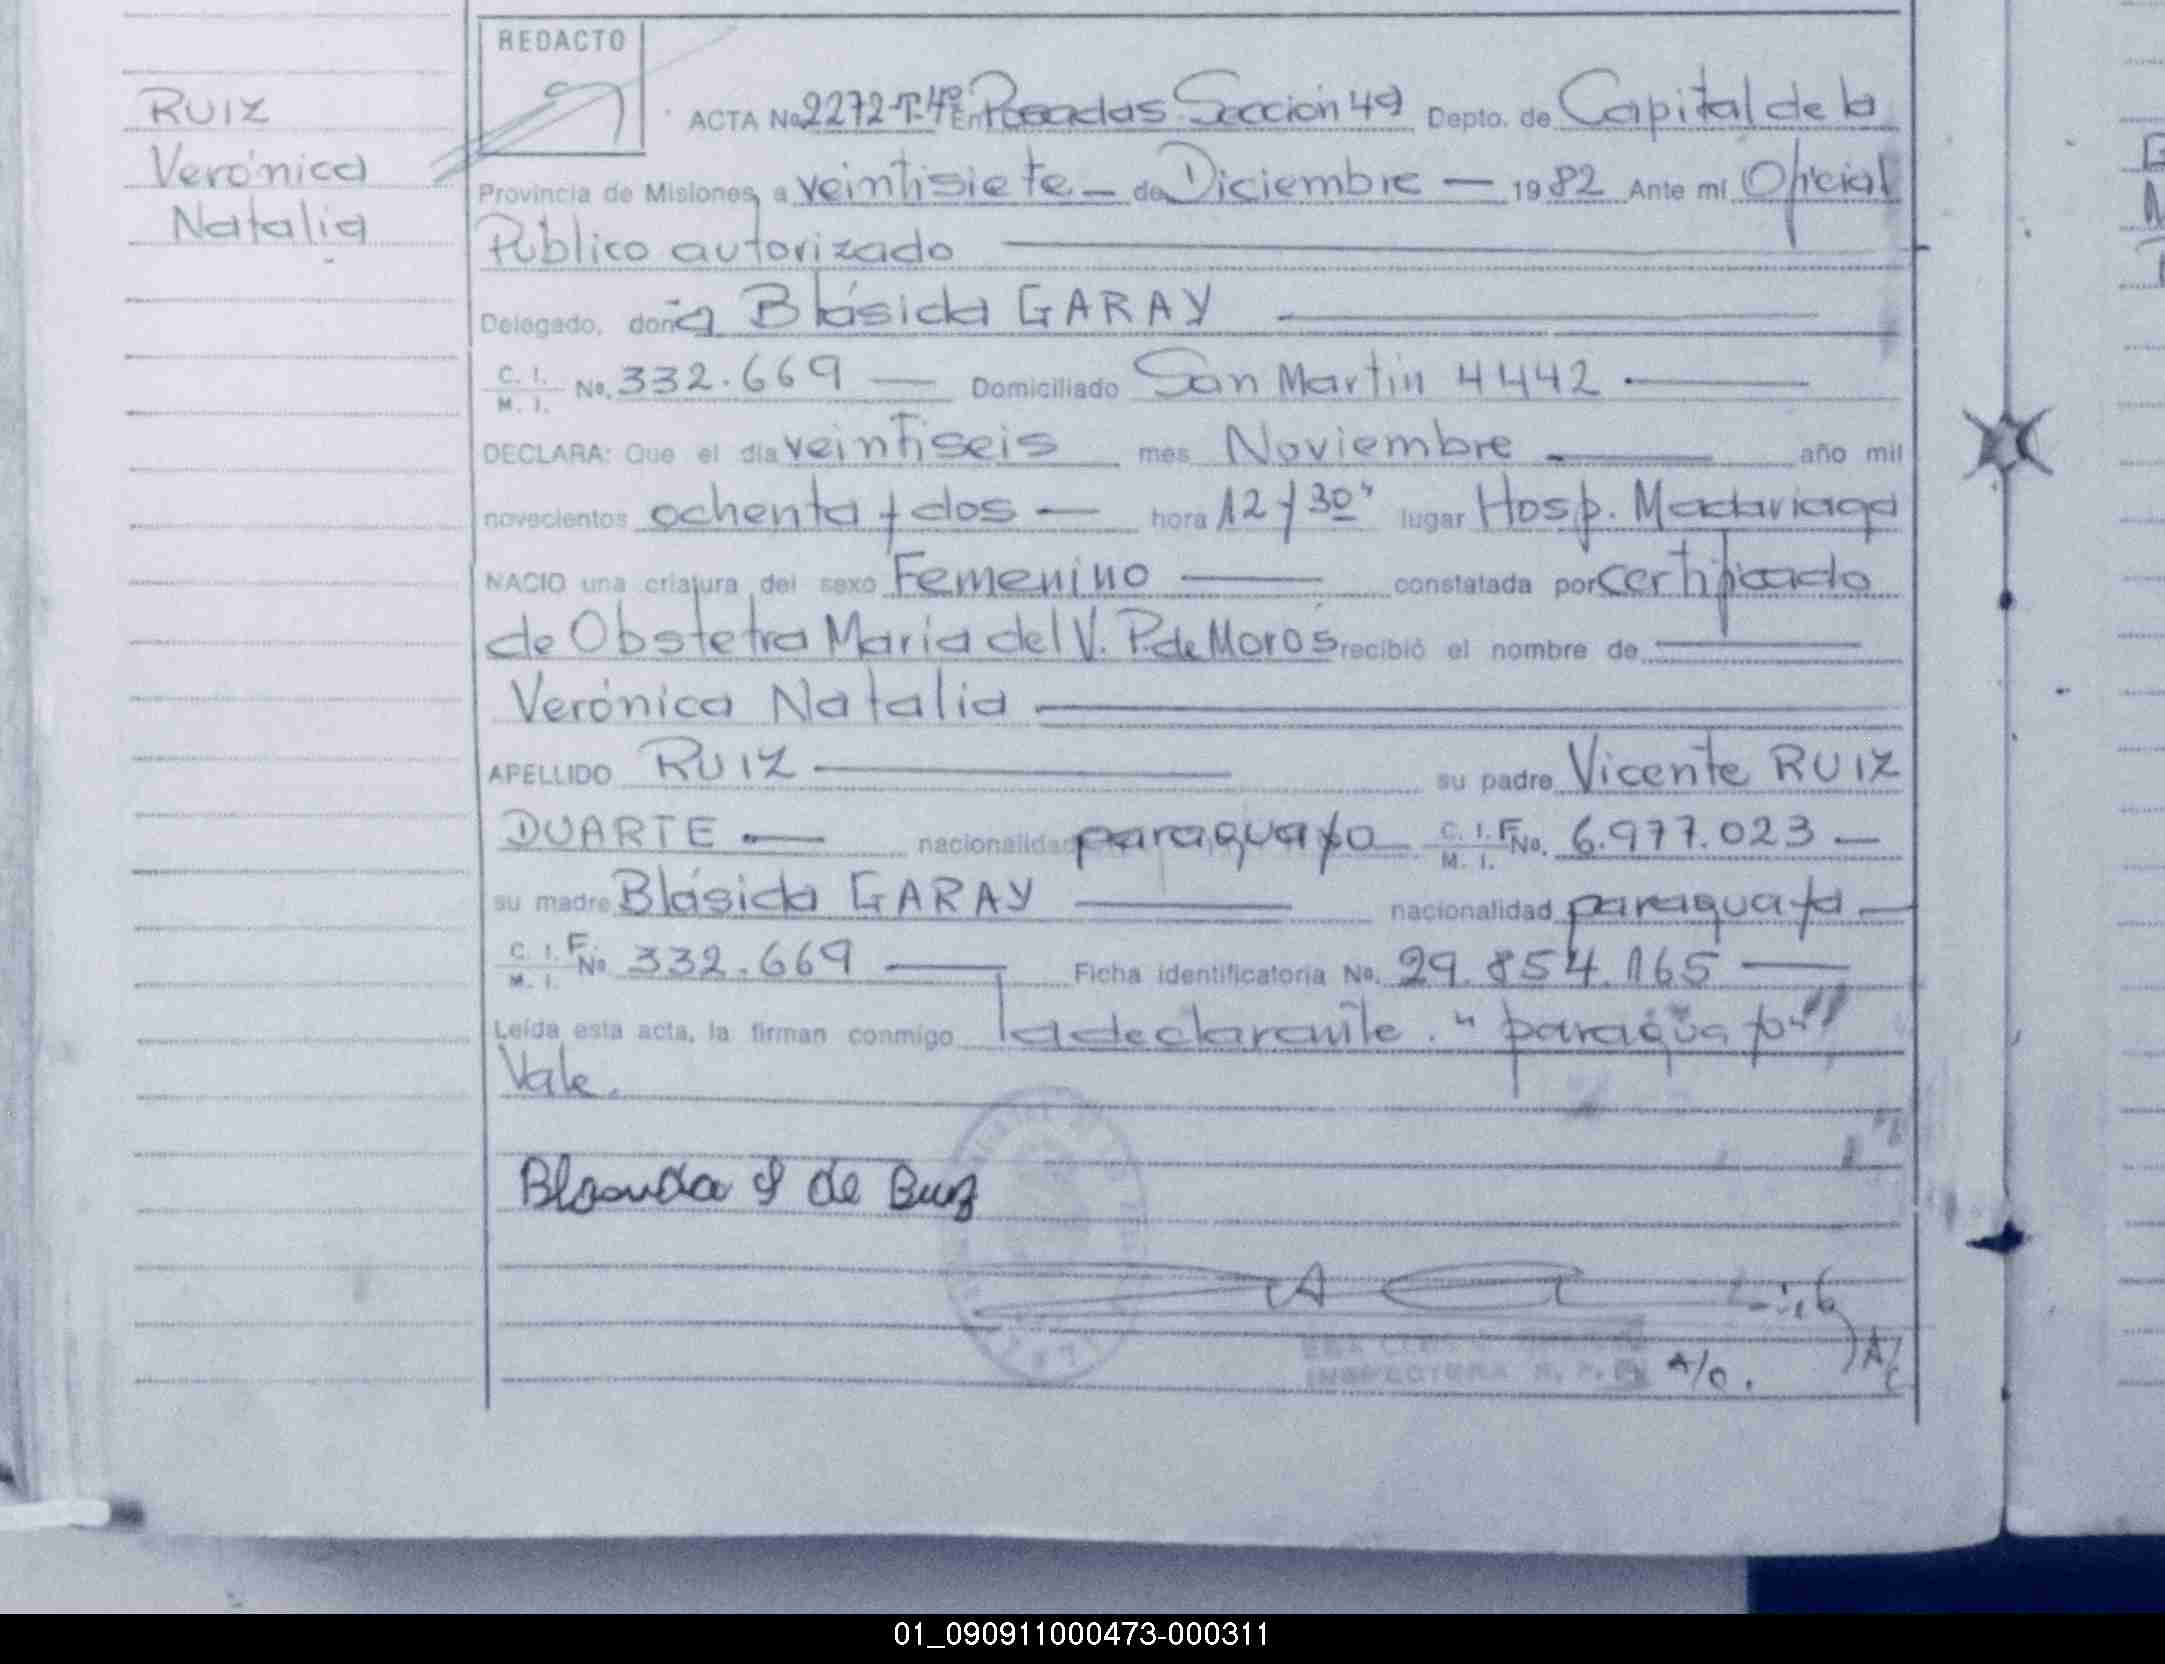 REDACTO
RUIZ
Verónica
Natalia
ACTA No 2272-T.4º En Posadas Sección 4ª Depto. de Capital de la
Provincia de Misiones, a veintisiete — de Diciembre — 1982 Ante mí Oficial
Público autorizado
Delegado, doña Blásida GARAY
C. I. M. I. No. 332.669 — Domiciliado San Martín 4442
DECLARA: Que el día veintiseis mes Noviembre año mil
novecientos ochenta y dos — hora 12 y 30" lugar Hosp. Madariaga
NACIO una criatura del sexo Femenino constatada por certificado
de Obstetra María del V. P. de Moros recibió el nombre de
Verónica Natalia
APELLIDO RUIZ su padre Vicente RUIZ
DUARTE nacionalidad paraguayo C. I. F M. I. No. 6.977.023 —
su madre Blásida GARAY nacionalidad paraguaya —
C. I. F M. I. No 332.669 — Ficha identificatoria No. 29.854.165 —
Leída esta acta, la firman conmigo la declarante. "paraguayo"
Vale.
de
INSPECTORA R. P.
A/c.
01_090911000473-000311